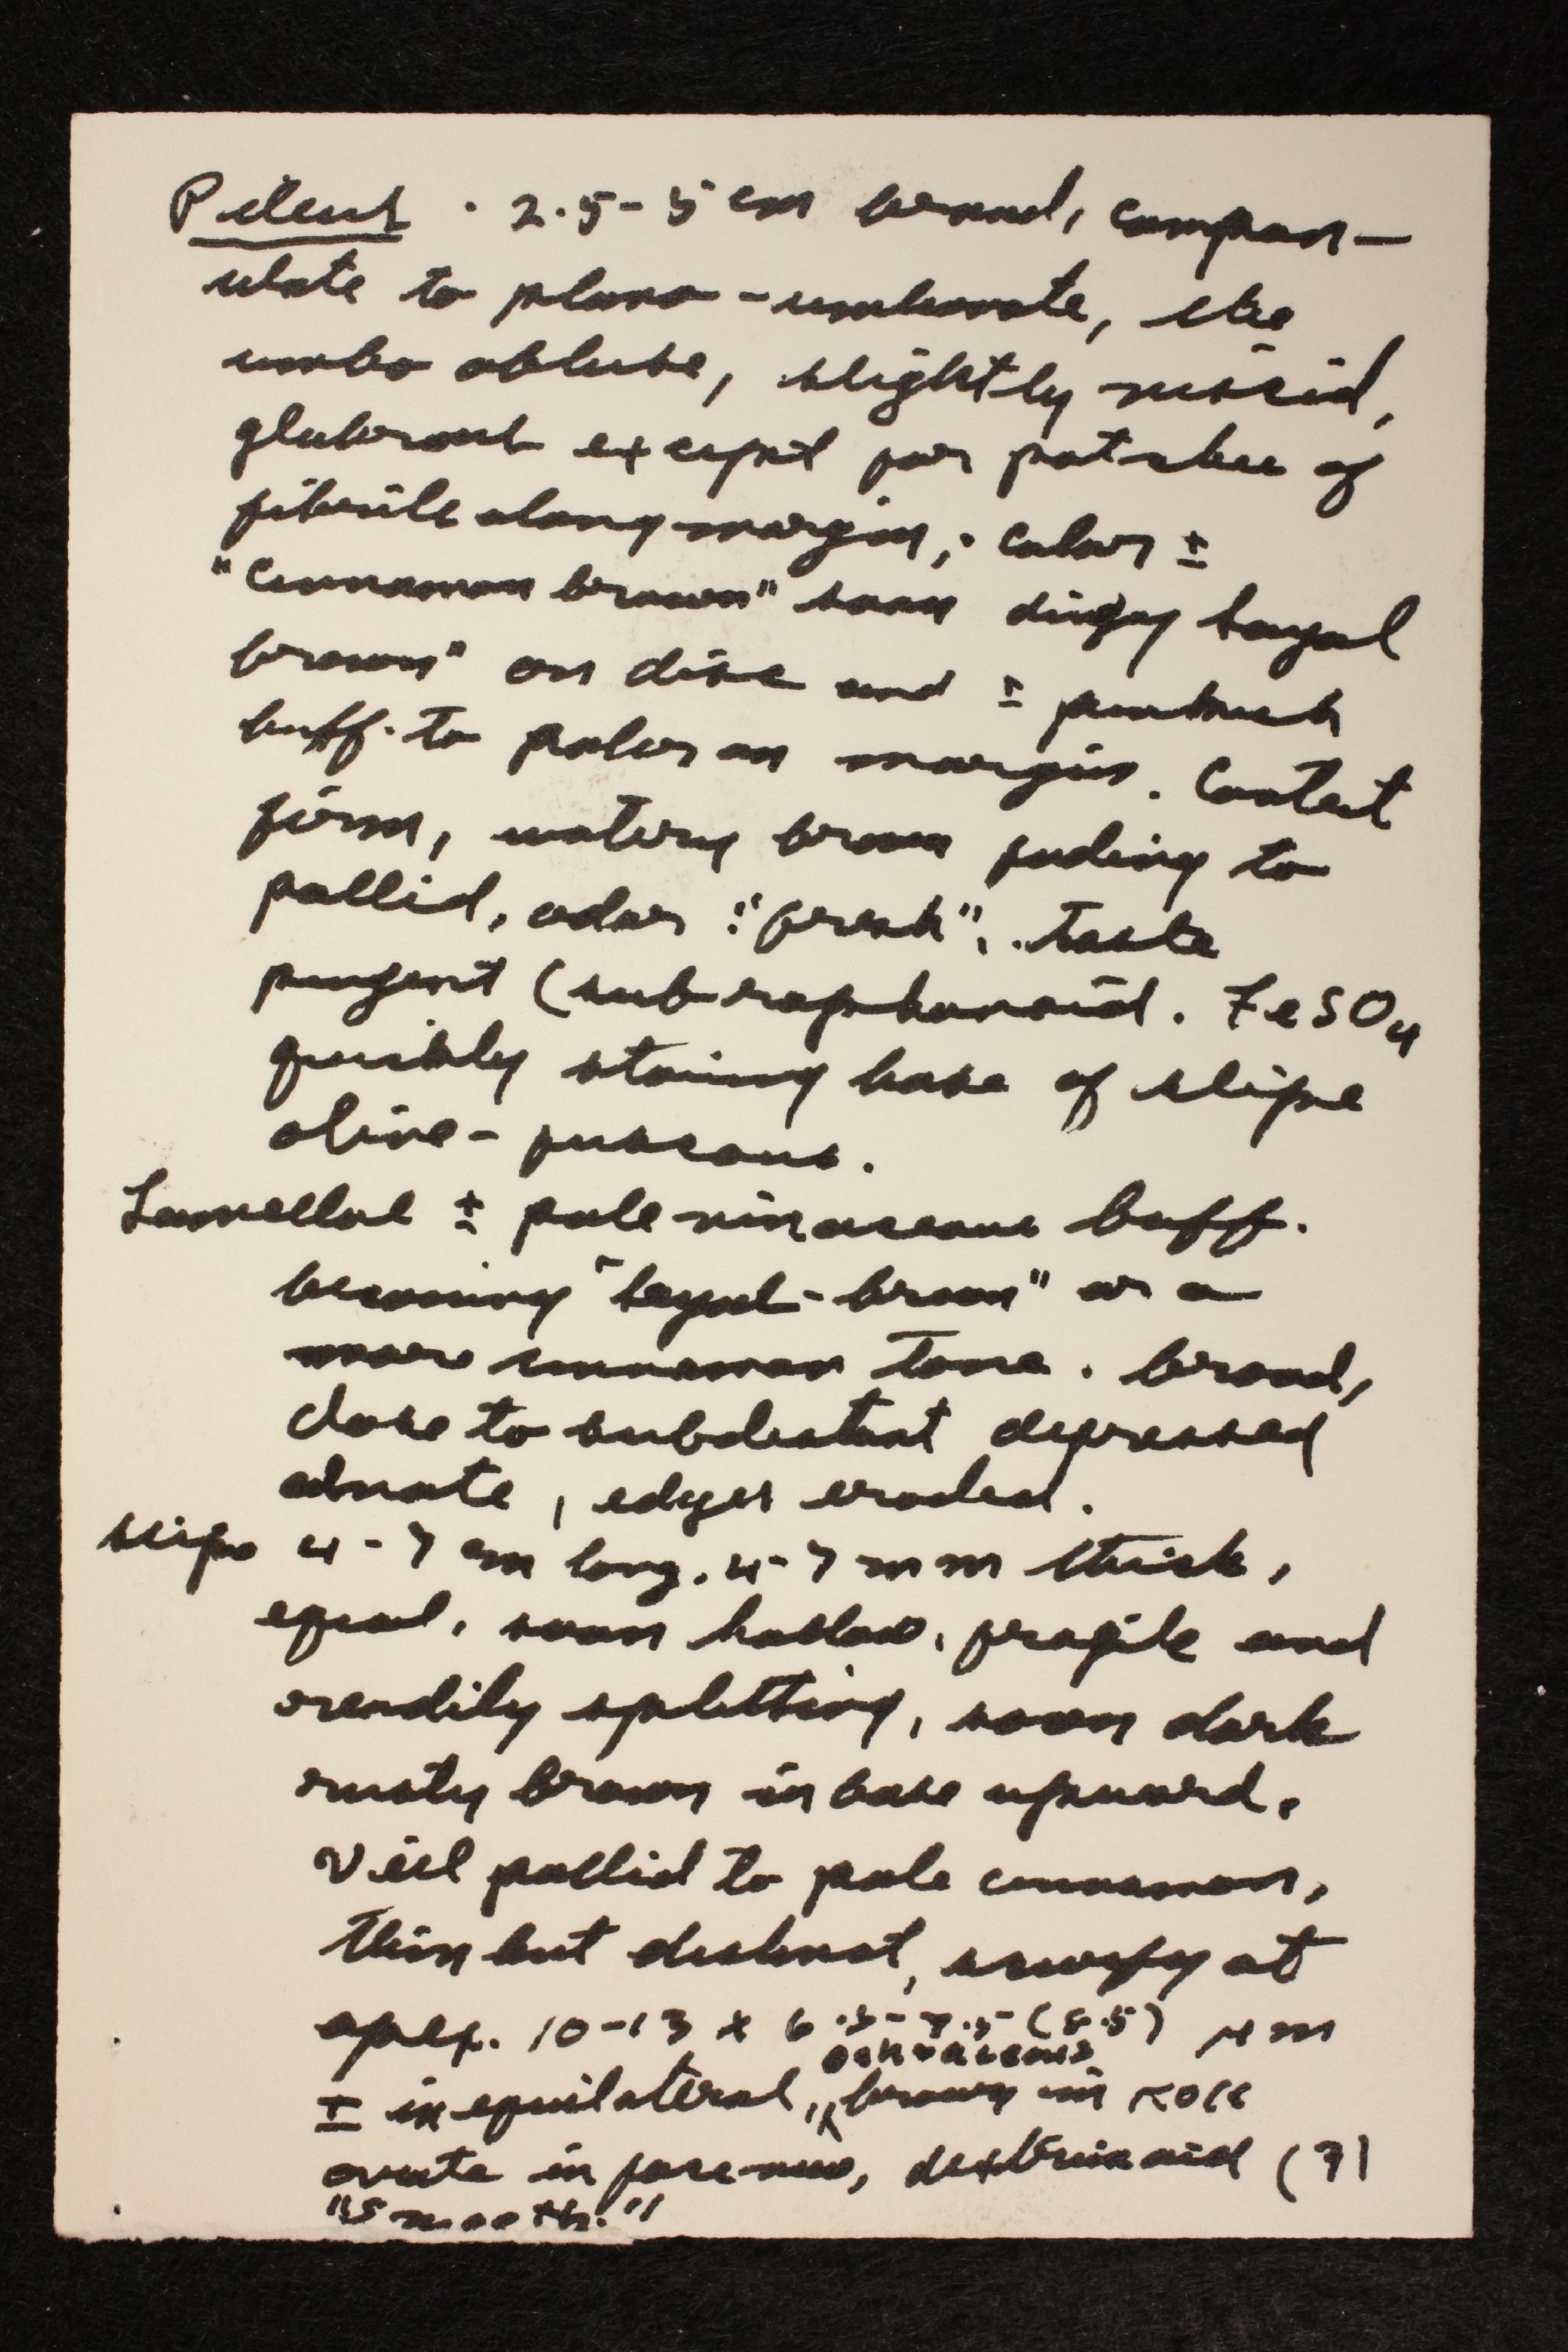 Pileus . 2.5-5 cm broad, campan-
ulate to plano-umbonate, the
umbo obtuse, slightly viscid,
glabrous except for patches of
fibrils along margin; color ±
"Cinnamon brown" soon dingy sayal
brown" on disc and ± pinkish
buff. to paler on margin. Context
firm, watery brown fading to
pallid, odor "fresh", taste
pungent (sub-raphanoid. FeSO4
quickly staining base of stipe
olive-fuscous.
Lamellae ± pale vinaceous buff.
becoming "sayal-brown" or a
more cinnamon tone. broad,
close to subdistant depressed
adnate, edges eroded.
stipe 4-7 cm long. 4-7 mm thick,
equal, soon hollow, fragile and
readily splitting, soon dark
rusty brown in base upward.
Veil pallid to pale cinnamon,
thin but distinct, scurfy at
apex. 10-13 x 6.5-7.5-(8.5) µm
± inequilateral, brown in KOH
ovate in face view, dextrinoid (?)
"Smooth."